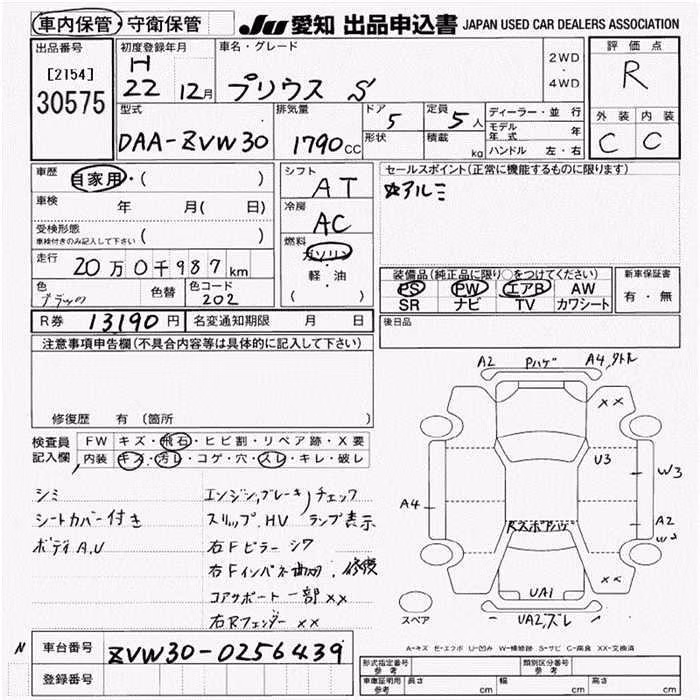 車内保管・守衛保管
JU 愛知 出品申込書 JAPAN USED CAR DEALERS ASSOCIATION
出品番号
[2154]
30575
初度登録年月
H
22 12月
車名・グレード
プリウス S
2WD
・
4WD
評価点
R
外装 内装
C C
型式
DAA-ZVW30
排気量
1790cc
ドア
5
形状
定員
5人
積載
kg
ディーラー・並行
モデル年式 年
ハンドル 左・右
車歴 自家用・( )
車検 年 月( 日)
受検形態
車検付きのみ記入して下さい ( )
走行 20万0千987km
色 ブラック 色替 色コード 202
R券 13190円 名変通知期限 月 日
シフト
AT
冷房
AC
燃料
ガソリン
・
軽・油
( )
セールスポイント(正常に機能するものに限ります)
☆アルミ
装備品(純正品に限り○をつけてください)
PS PW エアB AW
SR ナビ TV カワシート
新車保証書
有・無
後日品
注意事項申告欄(不具合内容等は具体的に記入して下さい)
修復歴 有 (箇所 )
検査員記入欄
FW キズ・飛石・ヒビ割・リペア跡・X要
内装 キズ・汚レ・コゲ・穴・スレ・キレ・破レ
シミ
シートカバー付き
ボディA.U
エンジン,ブレーキ,チェック
スリップ.HV ランプ表示
右Fピラー シワ
右Fインパネ曲切.修復
コアサポート一部××
右Rフェンダー××
A2 Pハゲ A4,タトル
××
U3
W3
A4
A2
W3
Rスポアハゲ
××
UA1
UA2,ズレ
スペア
A-キズ E-エクボ U-凹み W-補修跡 S-サビ C-腐食 XX-交換済
N
車台番号 ZVW30-0256439
登録番号
形式指定番号 参考
類別区分番号 参考
車庫証明用 参考 長さ cm 幅 cm 高さ cm